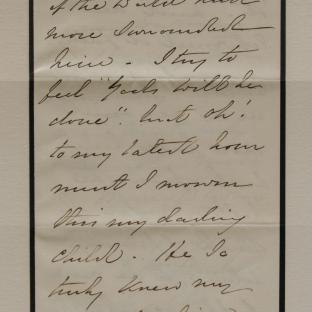 of the Dead have
more surrounded
him. I try to
feel "God's will be
done". but oh!
to my latest hour
must I mourn
this my darling
child. He so
truly knew my